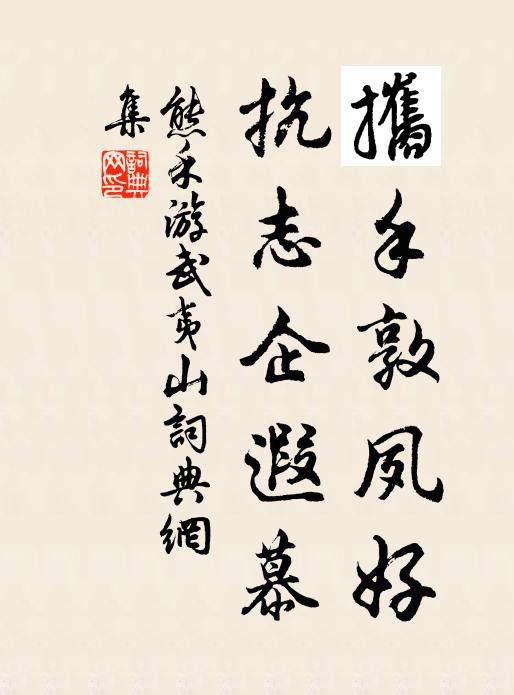 攜手敦夙好
抗志企遐慕
熊禾游武夷山詞典網
集
詞典網印